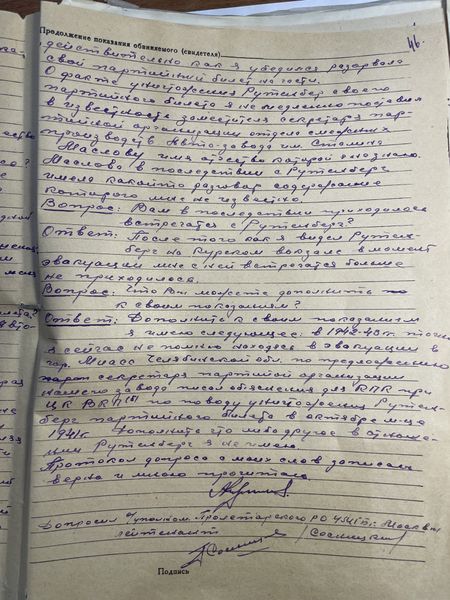 46.
Продолжение показания обвиняемого (свидетеля)
действительно как я убедился разорвала
свой партийный билет на части.
О факте уничтожения Рутенберг своего
партийного билета я немедленно поставил
в известность заместителя секретаря пар-
тийной организации отдела смежных
производств Авто-завода им. Сталина
Маслову имя отчество которой я не знаю.
Маслова в последствии с Рутенберг
имела какой то разговор содержание
которого мне не известно.
Вопрос: Вам в последствии приходилось
встречатся с Рутенберг?
Ответ: После того как я видел Рутен-
берг на Курском вокзале в момент
эвакуации мне с ней встречатся больше
не приходилось.
Вопрос: Что Вы можете дополнить
к своим показаниям?
Ответ: Дополнить к своим показаниям
я имею следующее: в 1942-43 г. точно
я сейчас не помню находясь в эвакуации в
гор. Миасс Челябинской обл. по предложению
секретаря партийной организации
нашего завода писал объяснения для КПК при
ЦК ВКП(б) по поводу уничтожения Рутен-
берг партийного билета в октябре м-це
1941 г. Дополнить что либо другое в отноше-
нии Рутенберг я не имею.
Протокол допроса с моих слов записан
верно и мною прочитан.
Допросил О/уполном. Пролетарского РО г. Москвы
лейтенант /Сосницкий/
Подпись